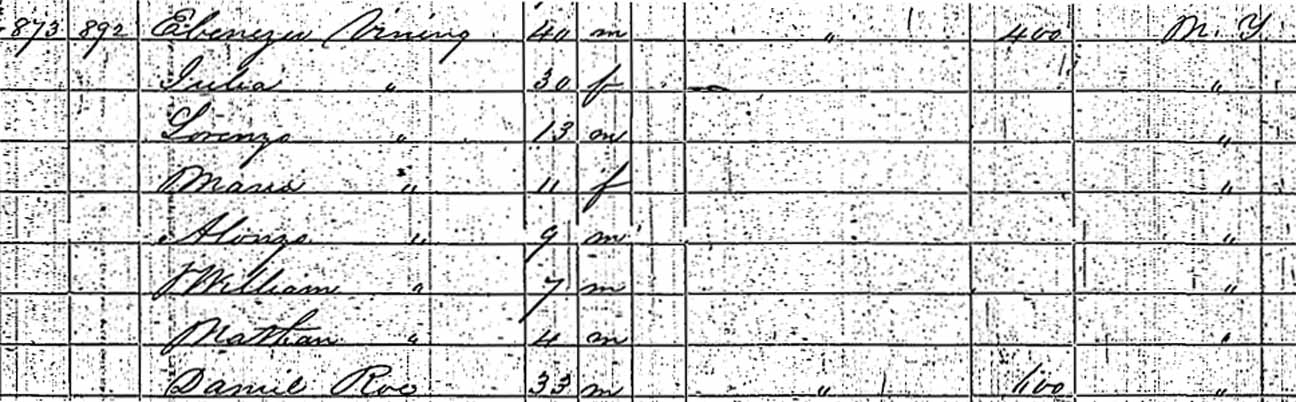 873 892 Ebenezer Vining 40 m " 400 N. Y.
Julia " 30 f "
Lorenzo " 13 m "
Maria " 11 f "
Alonzo " 9 m "
William " 7 m "
Nathan " 4 m "
Daniel Roe 33 m " 100 "